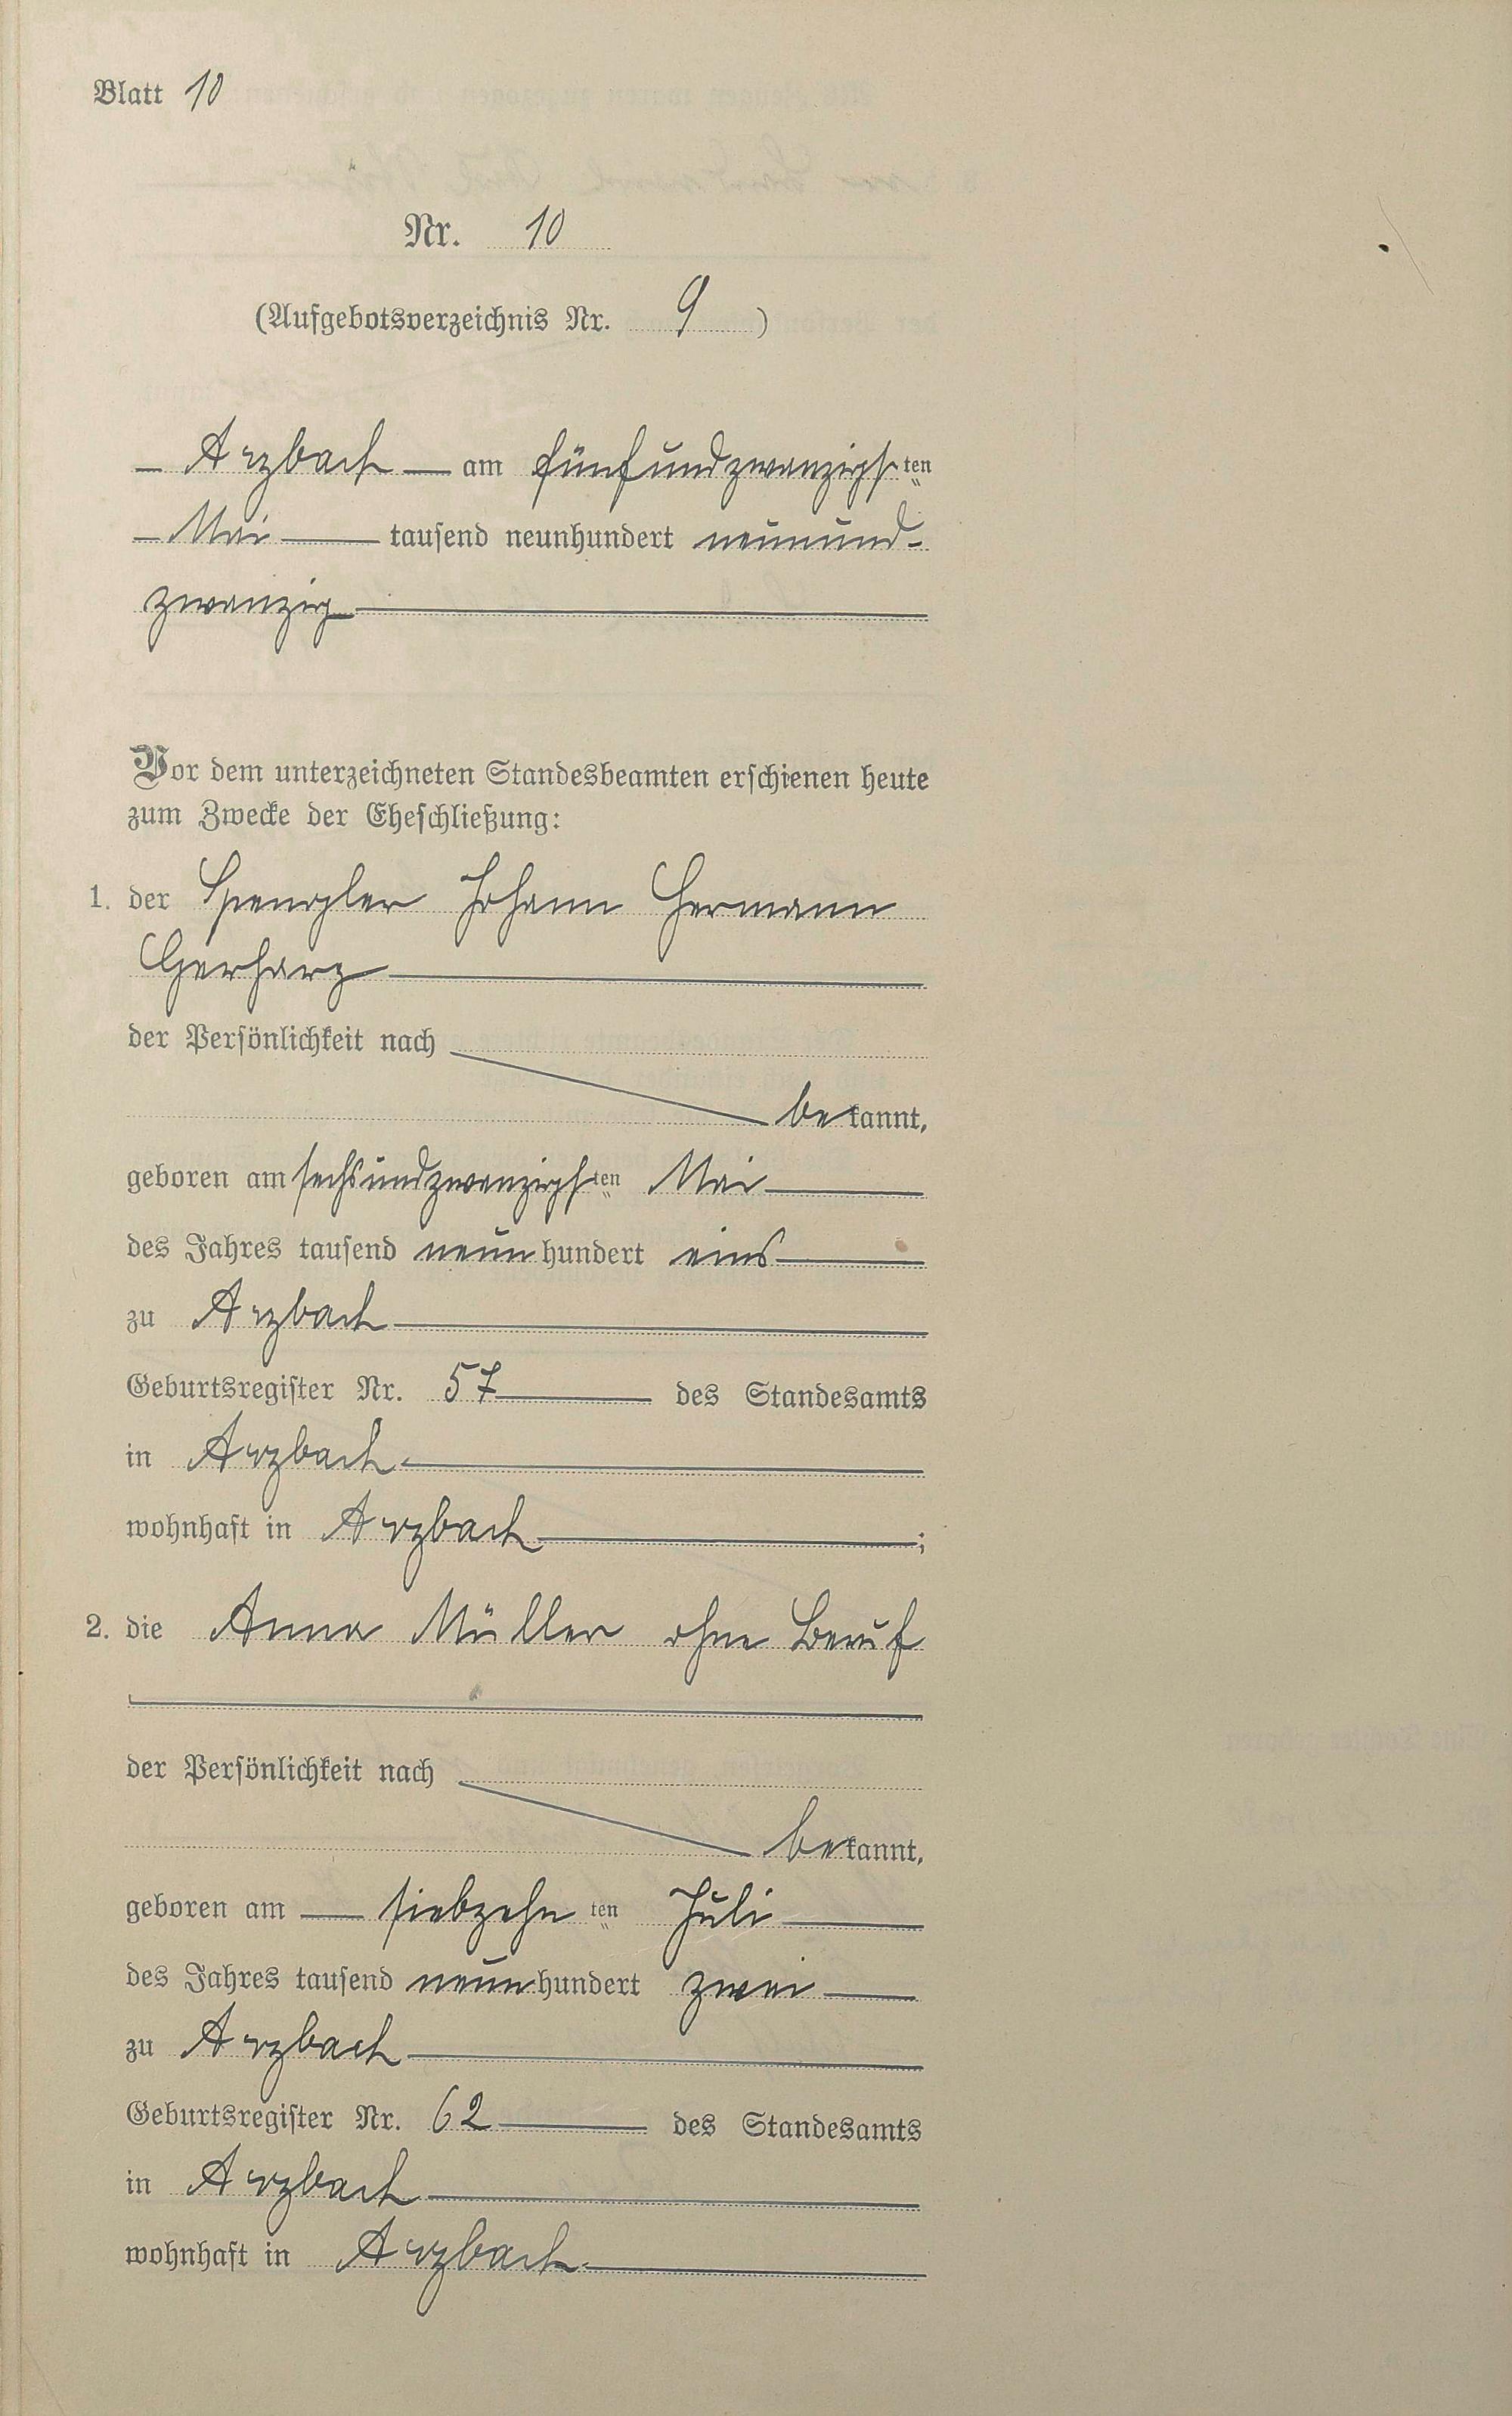 Blatt 10
Nr. 10
(Aufgebotsverzeichnis Nr. 9)
Arzbach am fünfundzwanzigsten
Mai tausend neunhundert neunund-
zwanzig
Vor dem unterzeichneten Standesbeamten erschienen heute
zum Zwecke der Eheschließung:
1. der Spengler Johann Hermann
Gerharz
der Persönlichkeit nach
bekannt,
geboren am sechsundzwanzigsten Mai
des Jahres tausend neunhundert eins
zu Arzbach
Geburtsregister Nr. 57 des Standesamts
in Arzbach
wohnhaft in Arzbach;
2. die Anna Müller ohne Beruf
der Persönlichkeit nach
bekannt,
geboren am siebzehnten Juli
des Jahres tausend neunhundert zwei
zu Arzbach
Geburtsregister Nr. 62 des Standesamts
in Arzbach
wohnhaft in Arzbach